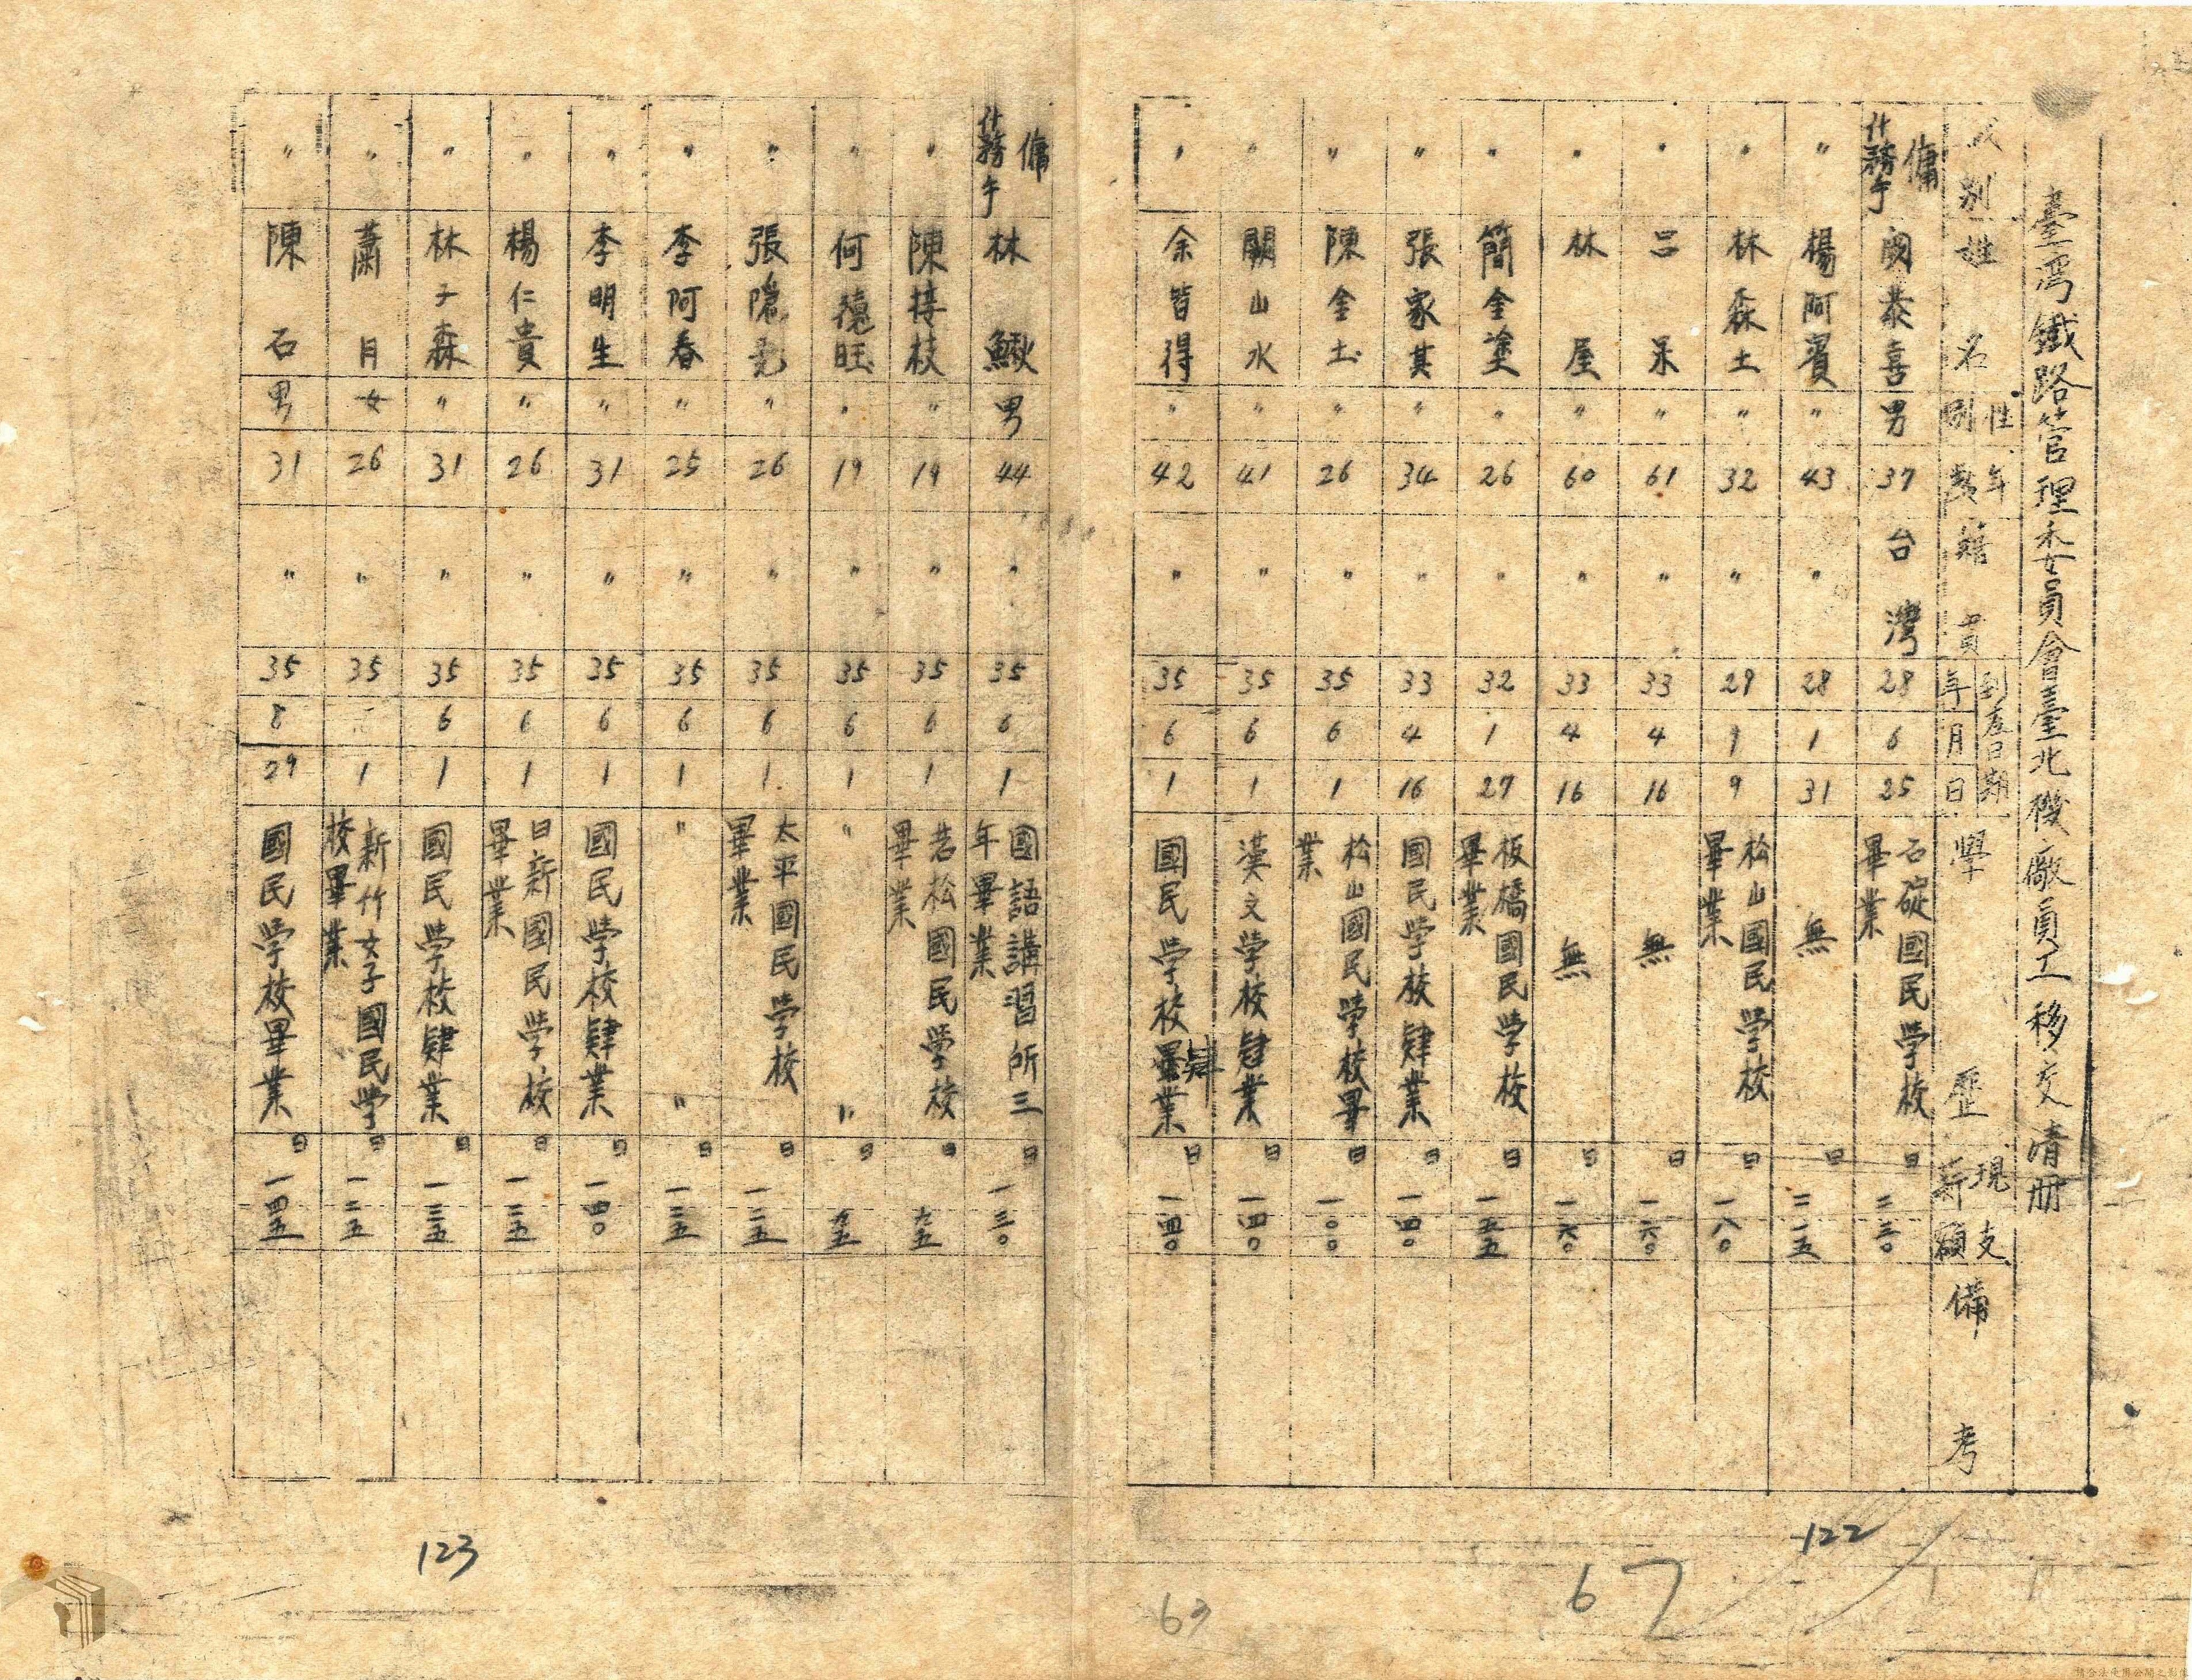 臺灣鐵路管理委員會臺北機廠員工移交清册
別 姓名 性別 年歲 籍貫 到差日期 年 月 日 學歷 現支薪額 備考
傭 什務手 闕恭喜 男 37 台灣 28 6 25 石碇國民学校畢業 日 二三〇
〃 楊阿濱 〃 43 〃 28 1 31 無 日 二一五
〃 林森土 〃 32 〃 29 9 9 松山國民学校畢業 日 一八〇
〃 呂呆 〃 61 〃 33 4 16 無 日 一六〇
〃 林屋 〃 60 〃 33 4 16 無 日 一六〇
〃 簡金塗 〃 26 〃 32 1 27 板橋國民学校畢業 日 一五五
〃 張家其 〃 34 〃 33 4 16 國民学校肄業 日 一四〇
〃 陳金土 〃 26 〃 35 6 1 松山國民学校畢業 日 一〇〇
〃 闕山水 〃 41 〃 35 6 1 漢文学校肄業 日 一四〇
〃 余皆得 〃 42 〃 35 6 1 國民学校肄業 日 一四〇
122
67
傭 什務手 林鰍 男 44 〃 35 6 1 國語講習所三年畢業 日 一三〇
〃 陳接枝 〃 19 〃 35 6 1 若松國民学校畢業 日 九五
〃 何德旺 〃 19 〃 35 6 1 〃 〃 日 九五
〃 張隐 〃 26 〃 35 6 1 太平國民学校畢業 日 一三五
〃 李阿春 〃 25 〃 35 6 1 〃 〃 日 一三五
〃 李明生 〃 31 〃 35 6 1 國民学校肄業 日 一四〇
〃 楊仁貴 〃 26 〃 35 6 1 日新國民学校畢業 日 一三五
〃 林子森 〃 31 〃 35 6 1 國民学校肄業 日 一三五
〃 蕭月 女 26 〃 35 1 新竹女子國民学校畢業 日 一二五
〃 陳石 男 31 〃 35 8 29 國民学校畢業 日 一四五
123